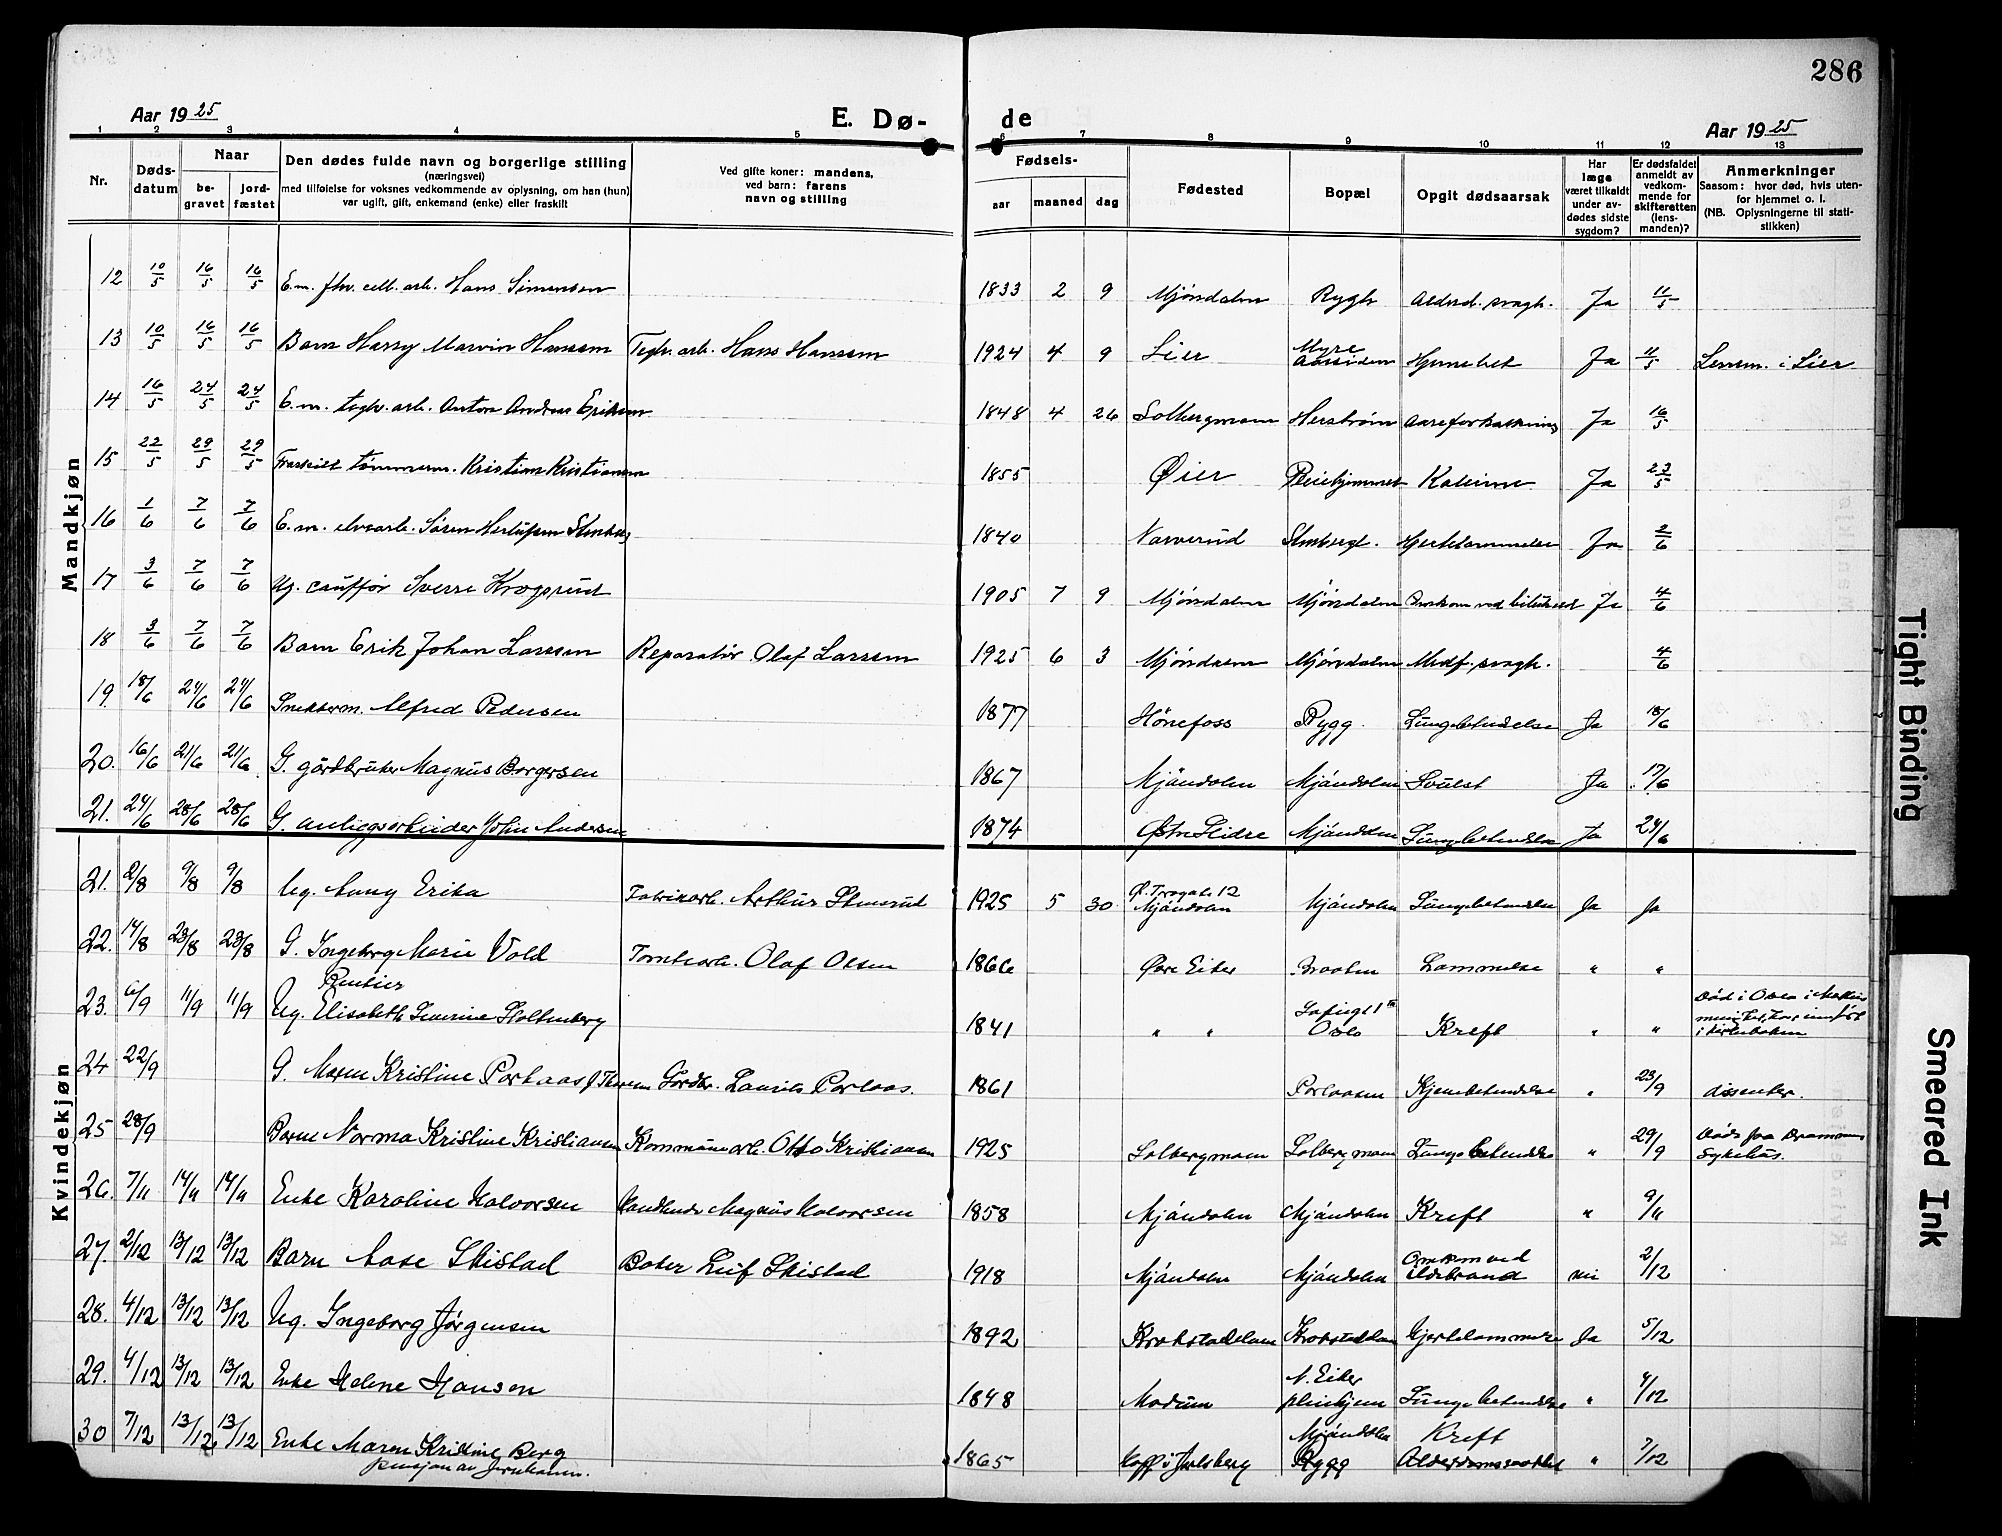 286
Aar 1925
E. Dø-
de
Aar 1925
1 2 3 4 5 6 7 8 9 10 11 12 13
Nr.
Døds-
datum
Naar
be-
gravet
jord-
fæstet
Den dødes fulde navn og borgerlige stilling
(næringsvei)
med tilføielse for voksnes vedkommende av oplysning, om han (hun)
var ugift, gift, enkemand (enke) eller fraskilt
Ved gifte koner: mandens,
ved barn: farens
navn og stilling
Fødsels-
aar maaned dag
Fødested
Bopæl
Opgit dødsaarsak
Har
læge
været tilkaldt
under av-
dødes sidste
sygdom?
Er dødsfaldet
anmeldt av
vedkom-
mende for
skifteretten
(lens-
manden)?
Anmerkninger
Saasom: hvor død, hvis uten-
for hjemmet o. l.
(NB. Oplysningerne til stati-
stikken)
Mandkjøn
12 10/5 16/5 16/5 E.m. fhv. cell. arb. Hans Simensen 1833 2 9 Mjøndalen Rygh Alderd. svagh. Ja 11/5
13 10/5 16/5 16/5 Barn Harry Marvin Hansen Teglv. arb. Hans Hansen 1924 4 9 Lier Myre Aassiden Ja 11/5 Lensm. i Lier
14 16/5 24/5 24/5 E.m. teglv. arb. Anton Andreas Eriksen 1848 4 26 Solbergmoen Herstrøm Aareforkalkning Ja 16/5
15 22/5 29/5 29/5 Fraskilt tømmerm. Kristian Kristiansen 1855 Øier Pleiehjemmet Ja 23/5
16 1/6 7/6 7/6 E.m. elvearb. Søren 1840 Narverud Hjertelammelse Ja 2/6
17 3/6 7/6 7/6 Ug. cauffør Sverre Krogsrud 1905 7 9 Mjøndalen Mjøndalen Omkom ved Ja 4/6
18 3/6 7/6 7/6 Barn Erik Johan Larssen Reparatør Olaf Larssen 1925 6 3 Mjøndalen Mjøndalen Medf. svagh. 4/6
19. 18/6 24/6 24/6 Snekkerm. Alfred Pedersen 1877 Hønefoss Rygg. Lungebetendelse Ja 18/6
20. 16/6 21/6 21/6 G. gårdbruker Magnus Borgersen 1867 Mjøndalen Mjøndalen Svulst Ja 17/6
21. 24/6 28/6 28/6 G. anlægsarbeider John Andersen 1874 Østre Slidre Mjøndalen Lungebetendelse Ja 24/6
Kvindekjøn
21. 2/8 9/8 9/8 Ug. Anny Erika Fabrikarb. Arthur 1925 5 30 Mjøndalen Mjøndalen Lungebetendelse Ja Ja
22. 14/8 23/8 23/8 G. Ingeborg Marie Vold Tomtearb. Olaf Olsen 1866 Øvre Eiker Braaten Lammelse " "
23. 6/9 11/9 11/9 Rentier
Ug. Elisabeth Severine Stoltenberg 1841 " " Oslo Kreft " " Død i Oslo
24 22/9 G. Maren Kristine Porlaas f. Gårdbr. Laurits Porlaas. 1861 Porlaasen Hjernebetendelse " 23/9 dissenter.
25 28/9 Barn Norma Kristine Kristiansen Kommunearb. Otto Kristiansen 1925 Solbergmoen Solbergmoen Lungebetendelse " 29/9 Døde paa Drammens
Sykehus.
26. 7/11 14/11 14/11 Enke Karoline Halvorsen Handlende Magnus Halvorsen 1858 Mjøndalen Mjøndalen Kreft " 9/11
27. 2/12 13/12 13/12 Barn Aase Skistad Baker Leif Skistad 1918 Mjøndalen Mjøndalen Omkom ved
ildebrand nei 2/12
28. 4/12 13/12 13/12 Ug. Ingeborg Jørgensen 1892 Krokstadelven Krokstadelven Hjertelammelse Ja 5/12
29. 4/12 13/12 13/12 Enke Helene Hansen 1848 Modum N. Eiker
pleiehjem Lungebetendelse " 4/12
30 7/12 13/12 13/12 Enke Maren Kristine Berg
pensjon av Jernbanen. 1865 Hoff i Jarlsberg Mjøndalen
Rygg Kreft
" 7/12
Tight Binding
Smeared Ink